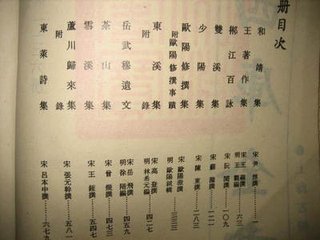 册目次
和靖集 宋尹焞撰 一
王著作集 宋王蘋撰 六三
郴江百詠 宋阮閱撰 一〇九
雙溪集 宋蘇籀撰 一二一
少陽集 宋陳東撰 二八三
歐陽修撰集 宋歐陽澈撰
附歐陽修撰事蹟 明歐陽鉞輯 三三三
東溪集 宋高登撰
附錄 明林希元編 四二七
岳武穆遺文 宋岳飛撰 明徐階編 四五九
茶山集 宋曾幾撰 四七三
雪溪集 宋王銍撰 五四七
蘆川歸來集 宋張元幹撰 五八
附錄
東萊詩集 宋呂本中撰 六七九